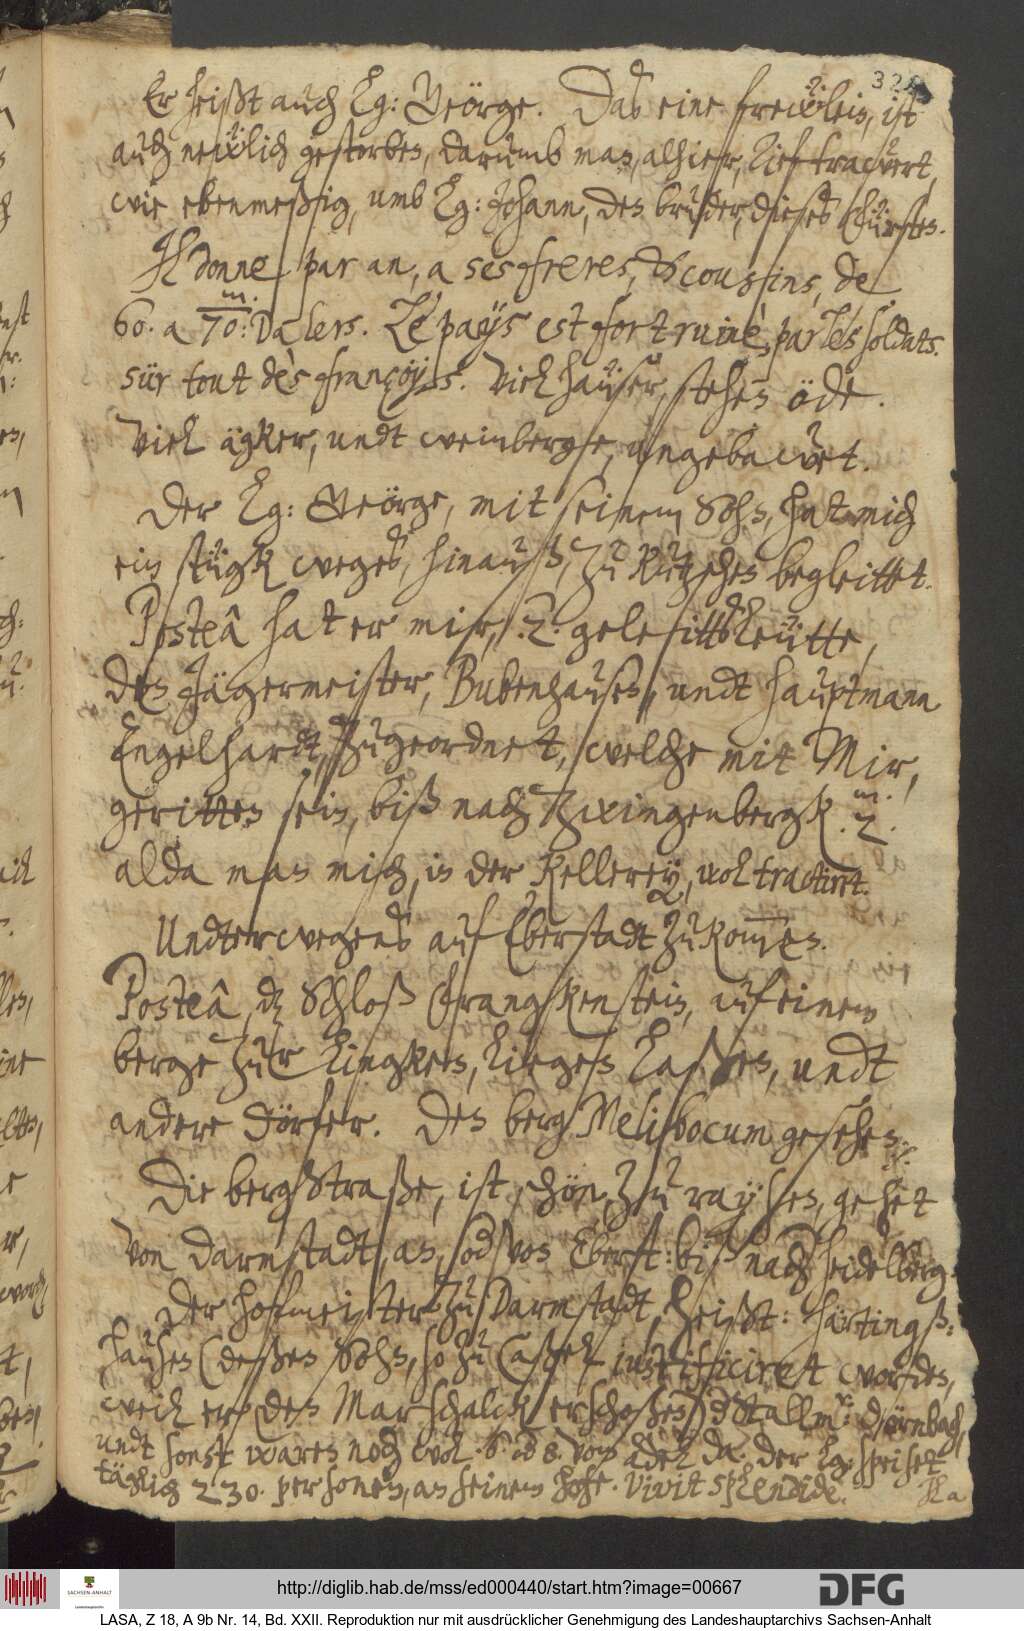 328
Er heißt auch Lg: Geörge. Das eine frewlein, ist
auch newlich gestorben, darumb man, alhier, tief trawert,
wie ebenmeßig, umb Lg: Johann, den bruder, dieses Fürsten.
Il donne par an, a ses freres, & cousins, de
60. a 70: m. Dalers. Le pays est fort ruinè, par les soldats.
sür tout dès françoys. Viel haüser, stehen öde.
Viel ägker, undt weinberge, ungebawet.
Der Lg: Geörge, mit seinem Sohn, hat mich
ein stügk weges, hinauß, zu kutzschen begleittet.
Posteâ hat er mir, 2. geleittsleütte,
den Jägermeister, Bubenhausen, undt hauptmann
Engelhardt, zugeordnet, welche mit Mir,
geritten sein, biß nach Zwingenbergk 2. m.
alda man mich, in der Kellerey, wol tractiret.
Undterwegens auf Eberstadt zukommen.
Posteâ, dz Schloß Frangkenstein, auf einem
berge zur Lingken, liegen laßen, undt
andere dörfer. Den berg Melibocum gesehen.
Die bergStraße, ist schön, zu rayhsen, gehet
von Darmstadt, an, oder von Eberst: biß nach heidelberg.
Der hofmeister zu Darmstadt, heißt: härtingß-
hausen (deßen Sohn, so zu Caßel justificiret worden,
weil er den Marschalck erschoßen) der Stallmr: dörnbach,
undt sonst waren noch wol 6. oder 8. vom adel da. der Lg: speiset
täglich 230. personen, an seinem hofe. Vivit splendide.
Il a
http://diglib.hab.de/mss/ed000440/start.htm?image=00667
DFG
SACHSEN-ANHALT
LASA, Z 18, A 9b Nr. 14, Bd. XXII. Reproduktion nur mit ausdrücklicher Genehmigung des Landeshauptarchivs Sachsen-Anhalt